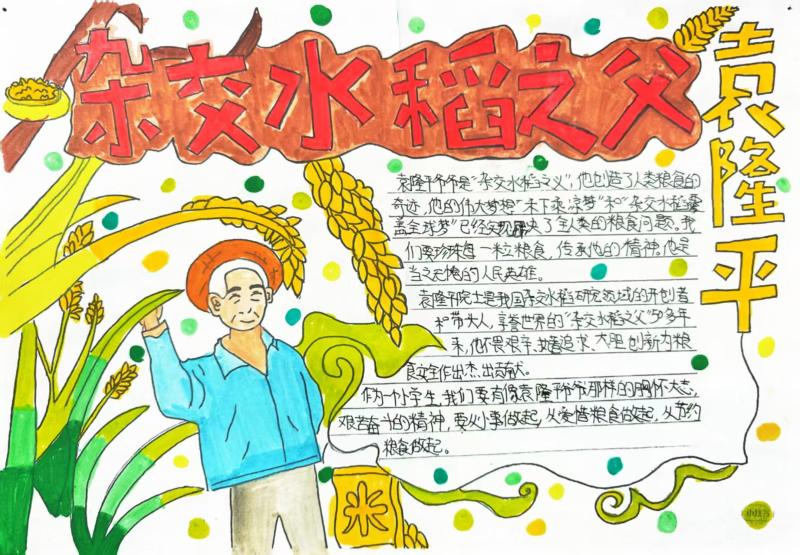 杂交水稻之父
袁隆平
袁隆平爷爷是“杂交水稻之父”,他创造了人类粮食的
奇迹,他的伟大梦想“禾下乘凉梦”和“杂交水稻覆
盖全球梦”已经实现解决了全人类的粮食问题。我
们要珍珠每一粒粮食,传承他的精神。他是
当之无愧的人民英雄。
袁隆平院士是我国杂交水稻研究领域的开创者
和带头人,享誉世界的“杂交水稻之父”50多年
来,他不畏艰辛、执着追求、大胆创新为粮
食安全作出杰出贡献。
作为小学生,我们要有像袁隆平爷爷那样的胸怀大志,
艰苦奋斗的精神,要从小事做起,从爱惜粮食做起,从节约
粮食做起。
米